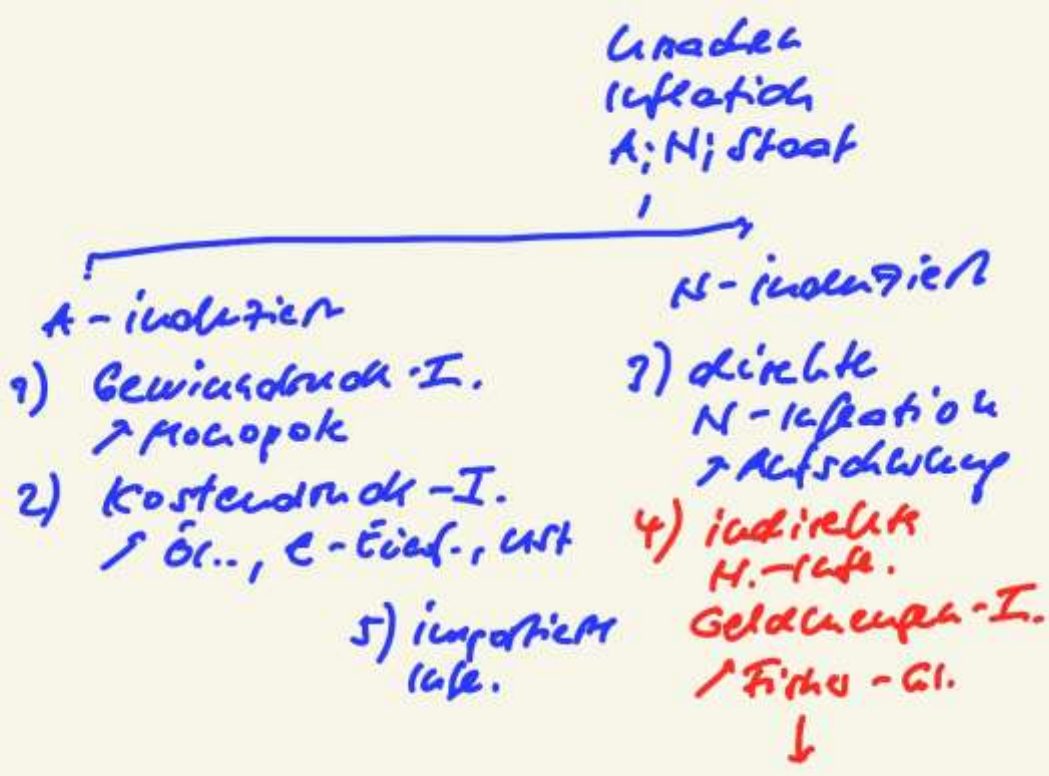 Ursachen
Inflation
A; N; Staat
A-induziert
1) Gewinndruck-I.
↗ Monopole
2) Kostendruck-I.
↗ Öl.., €-Einf., USt
N-induziert
3) direkte
N-Inflation
↗ Aufschwung
4) indirekte
N.-Infl.
Geldmengen-I.
↗ Fisher-Gl.
↓
5) importierte
Infl.